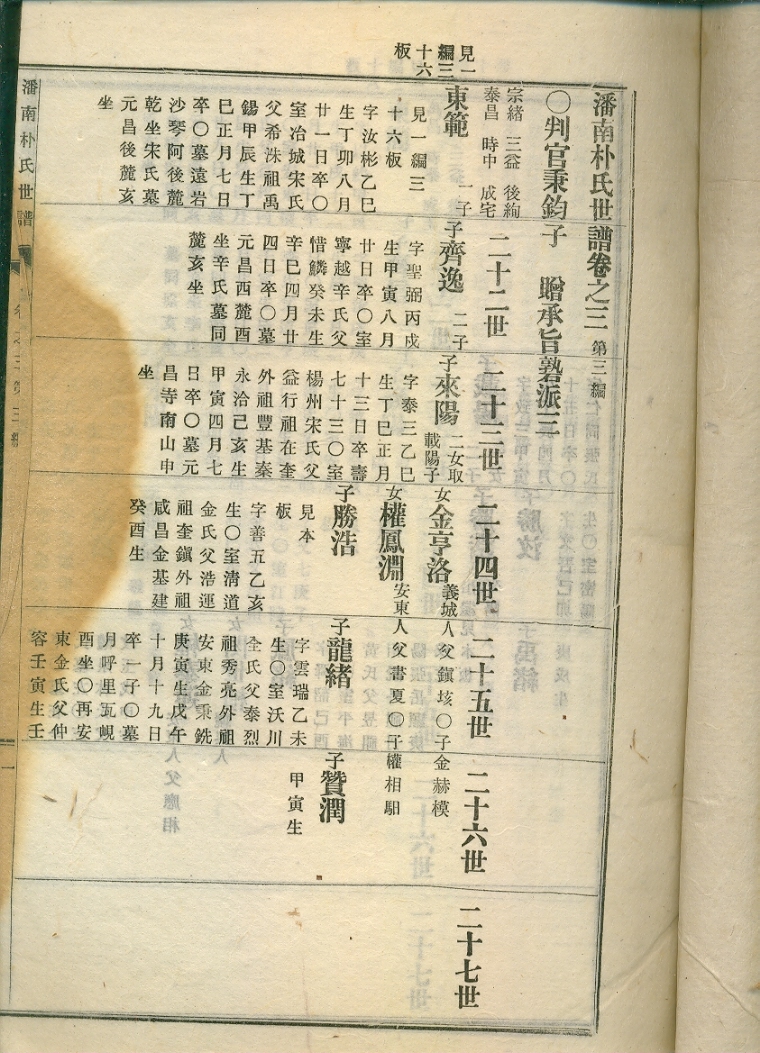 潘南朴氏世譜卷之三 第三編
〇判官秉鈞子 贈承旨塾派三
宗緒 三益 後絢
泰昌 時中 成宅
二十二世
二十三世
二十四世
二十五世
二十六世
二十七世
見一
編三
十六
板
東範 一子
見一編三
十六板
字汝彬乙巳
生丁卯八月
廿一日卒〇
室冶城宋氏
父希洙祖禹
錫甲辰生丁
巳正月七日
卒〇墓遠岩
沙琴阿後麓
乾坐宋氏墓
元昌後麓亥
坐
子齊逸 二子
字聖弼丙戌
生甲寅八月
廿日卒〇室
寧越辛氏父
惜鱗癸未生
辛巳四月廿
四日卒〇墓
元昌西麓酉
坐辛氏墓同
麓亥坐
子來陽 二女取
載陽子
字泰三乙巳
生丁巳正月
十三日卒壽
七十三〇室
楊州宋氏父
益行祖在奎
外祖豐基秦
永洽己亥生
甲寅四月七
日卒〇墓元
昌寺南山申
坐
女金亨洛 義城人父鎮垓〇子金赫模
女權鳳淵 安東人父書夏〇子權相馹
子勝浩
見本
板
字善五乙亥
生〇室清道
金氏父浩運
祖奎鎮外祖
咸昌金基建
癸酉生
子龍緒
字雲瑞乙未
生〇室沃川
全氏父泰烈
祖秀亮外祖
安東金秉銑
庚寅生戊午
十月十九日
卒一子〇墓
月呼里瓦峴
酉坐〇再安
東金氏父仲
容壬寅生壬
子贊潤
甲寅生
潘南朴氏世譜
一